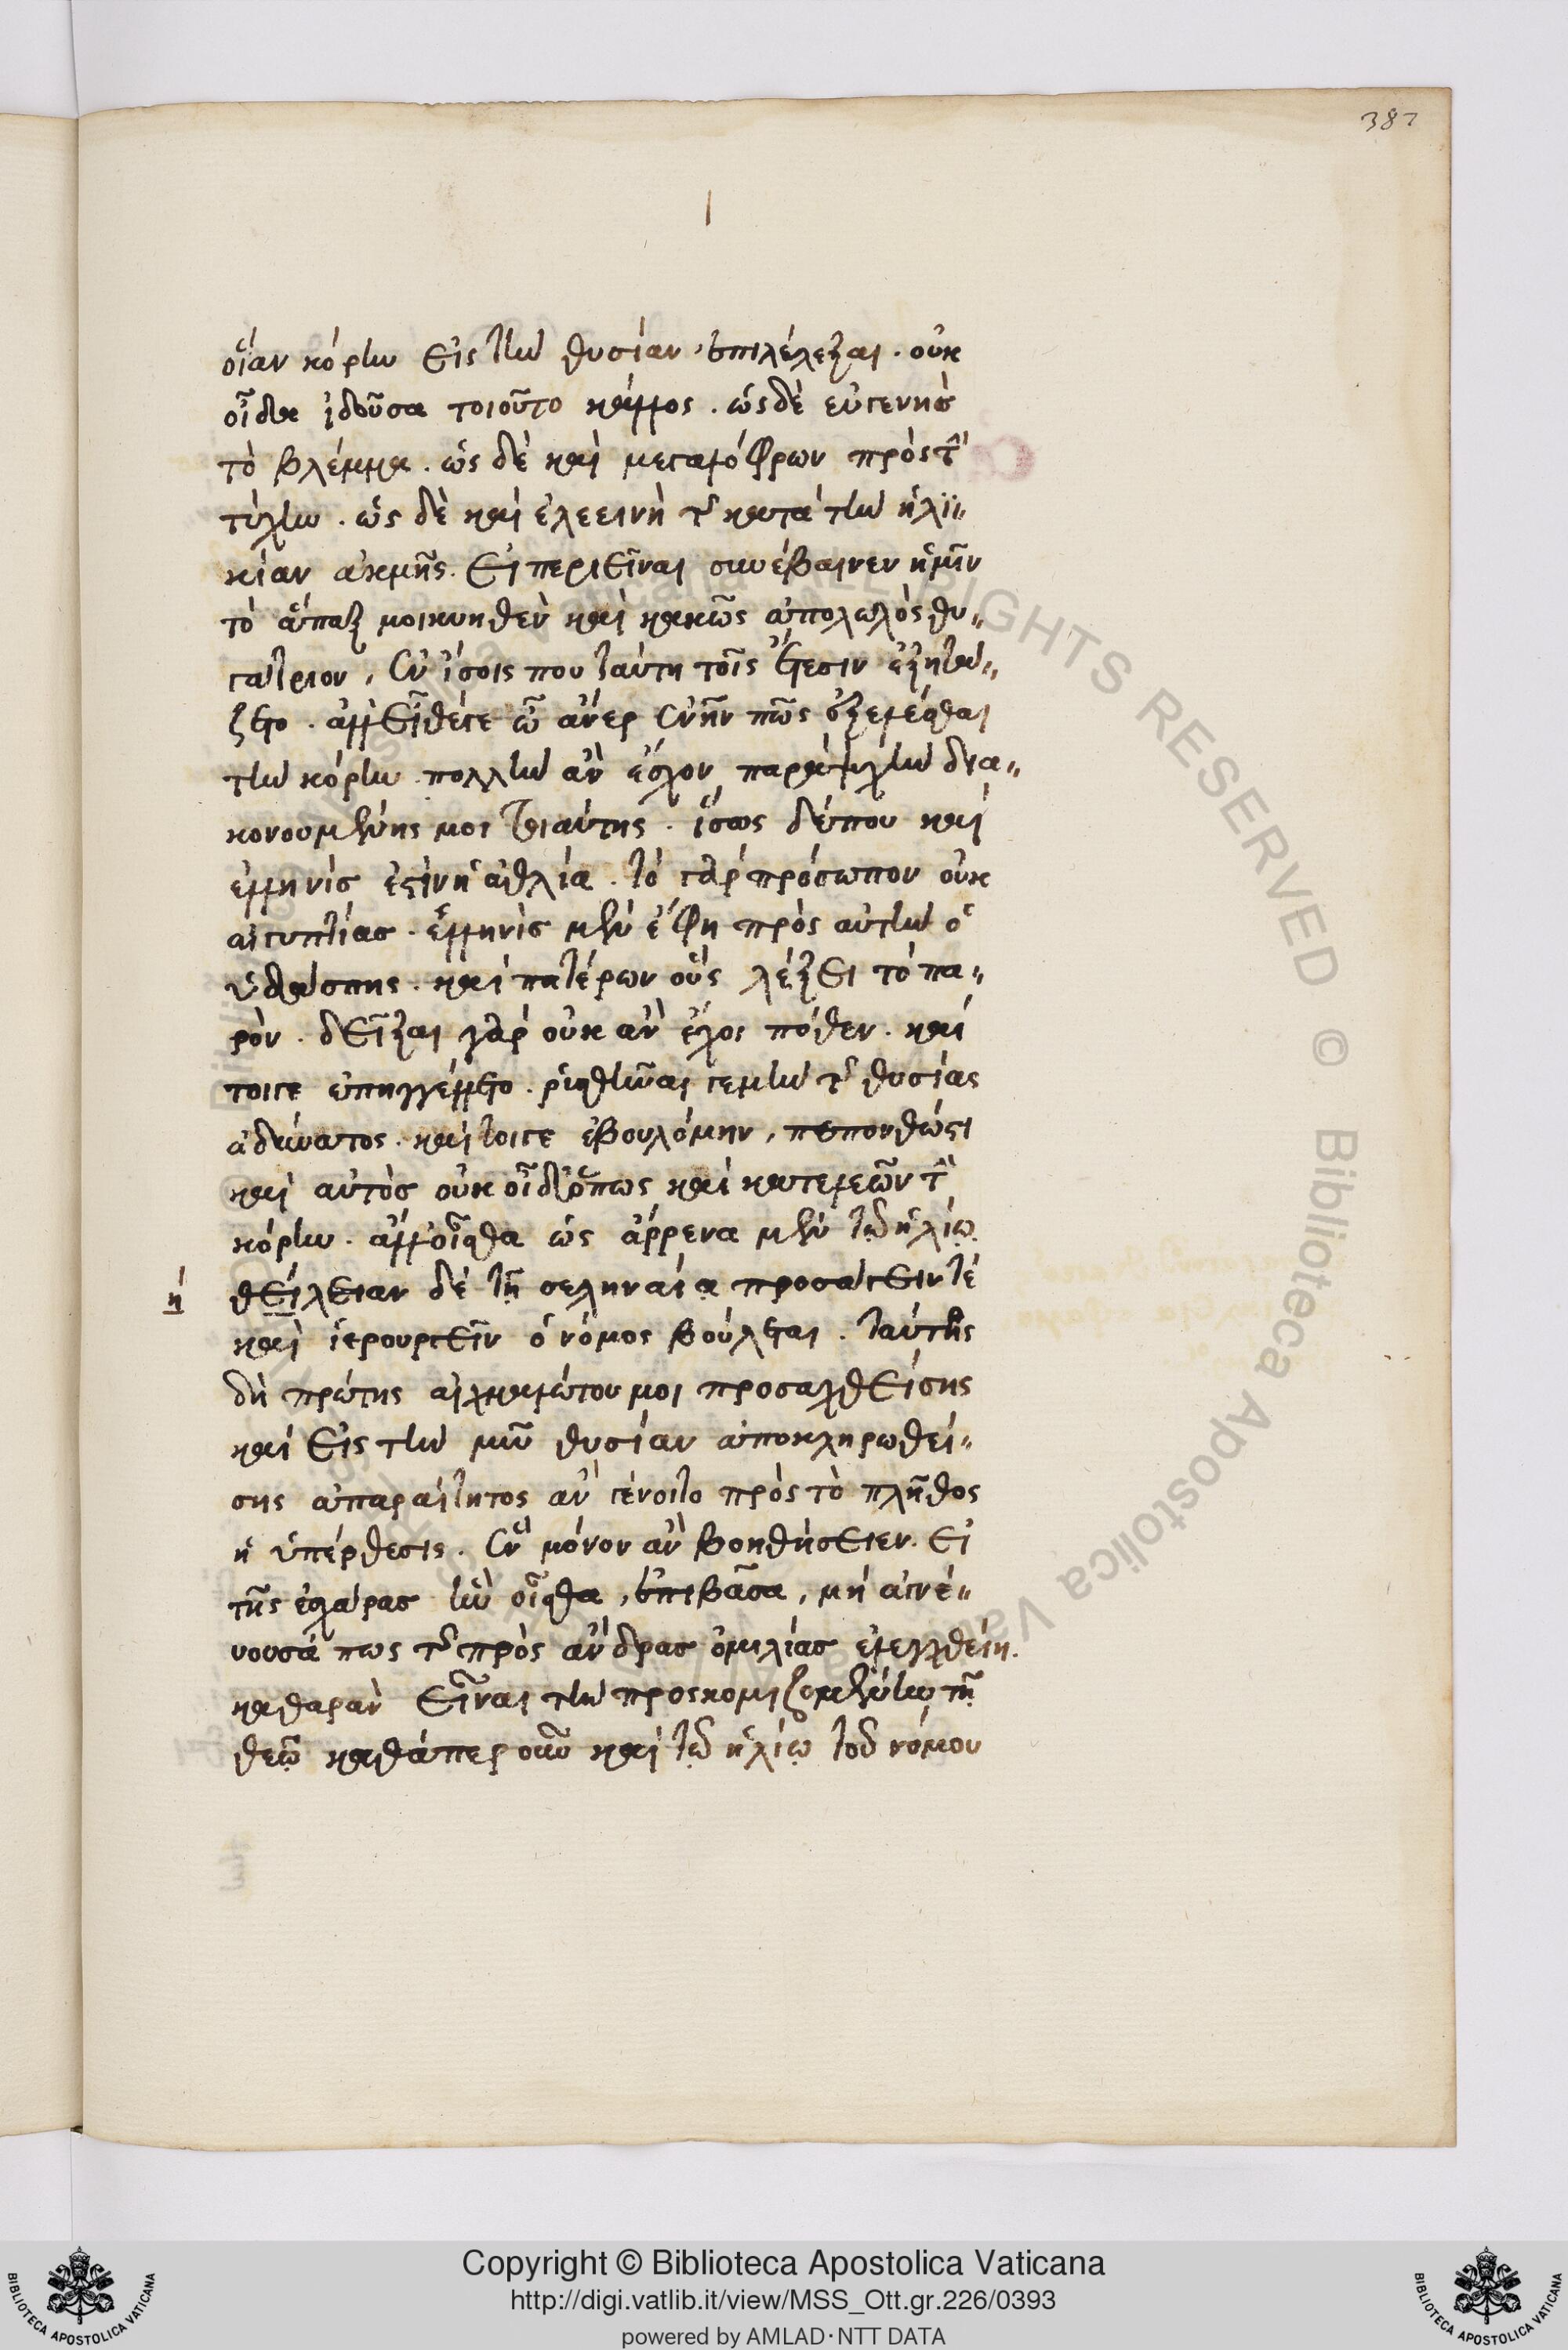 387
οἵαν κόρην εἰς τὴν θυσίαν, ἐπιλέλεξαι. οὐκ
οἶδα ἰδοῦσα τοιοῦτο κάλλος. ὡς δὲ εὐγενὲς
τὸ βλέμμα. ὡς δὲ καὶ μεγαλόφρων πρὸς τὴν
τύχην. ὡς δὲ καὶ ἐλεεινὴ τῆς κατὰ τὴν ἡλι"
κίαν ἀκμῆς. εἰ περιεῖναι συνέβαινεν ἡμῖν
τὸ ἅπαξ μοι κυηθὲν καὶ κακῶς ἀπολωλὸς θυ"
γάτριον, ἐν ἴσοις που ταύτῃ τοῖς ἔτεσιν ἐξητά"
ζετο. ἀλλ' εἴθε γε ὦ ἄνερ ἐνῆν πως ἐξελέσθαι
τὴν κόρην. πολλὴν ἂν ἔσχον παραψυχὴν δια"
κονουμένης μοι τοιαύτης. ἴσως δέ που καὶ
ἑλληνὶς ἐστὶν ἡ ἀθλία. τὸ γὰρ πρόσωπον οὐκ
αἰγυπτίας. ἑλληνὶς μὲν ἔφη πρὸς αὐτὴν ὁ
ὑδάσπης. καὶ πατέρων οὓς λέξει τὸ πα"
ρόν. δεῖξαι γὰρ οὐκ ἂν ἔχοι πόθεν. καί
τοιγε ἐπηγγέλλετο. ῥυσθῆναι γε μὴν τῆς θυσίας
ἀδύνατος. καίτοιγε ἐβουλόμην, πεπονθώς τι
καὶ αὐτὸς οὐκ οἶδ' ὅπως καὶ κατελεῶν τὴν
κόρην. ἀλλ' οἶσθα ὡς ἄρρενα μὲν τῷ ἡλίῳ
θείλειαν δὲ τῇ σεληναίᾳ προσάγειν τὲ
ή
καὶ ἱερουργεῖν ὁ νόμος βούλεται. ταύτης
δὴ πρώτης αἰχμαλώτου μοι προσαχθείσης
καὶ εἰς τὴν νῦν θυσίαν ἀποκληρωθεί"
σης ἀπαραίτητος ἂν γένοιτο πρὸς τὸ πλῆθος
ἡ ὑπέρθεσις. ἓν μόνον ἂν βοηθήσειεν. εἰ
τῆς ἐσχάρας ἣν οἶσθα, ἐπιβᾶσα, μὴ ἁγνε"
ύουσά πως τῆς πρὸς ἄνδρας ὁμιλίας ἐλεγχθείη.
καθαρὰν εἶναι τὴν προσκομιζομένην τῇ
θεῷ καθάπερ οὖν καὶ τῷ ἡλίῳ τοῦ νόμου
ALL RIGHTS RESERVED © Biblioteca Apostolica Vaticana
Copyright © Biblioteca Apostolica Vaticana
http://digi.vatlib.it/view/MSS_Ott.gr.226/0393
powered by AMLAD·NTT DATA
BIBLIOTECA APOSTOLICA VATICANA
BIBLIOTECA APOSTOLICA VATICANA